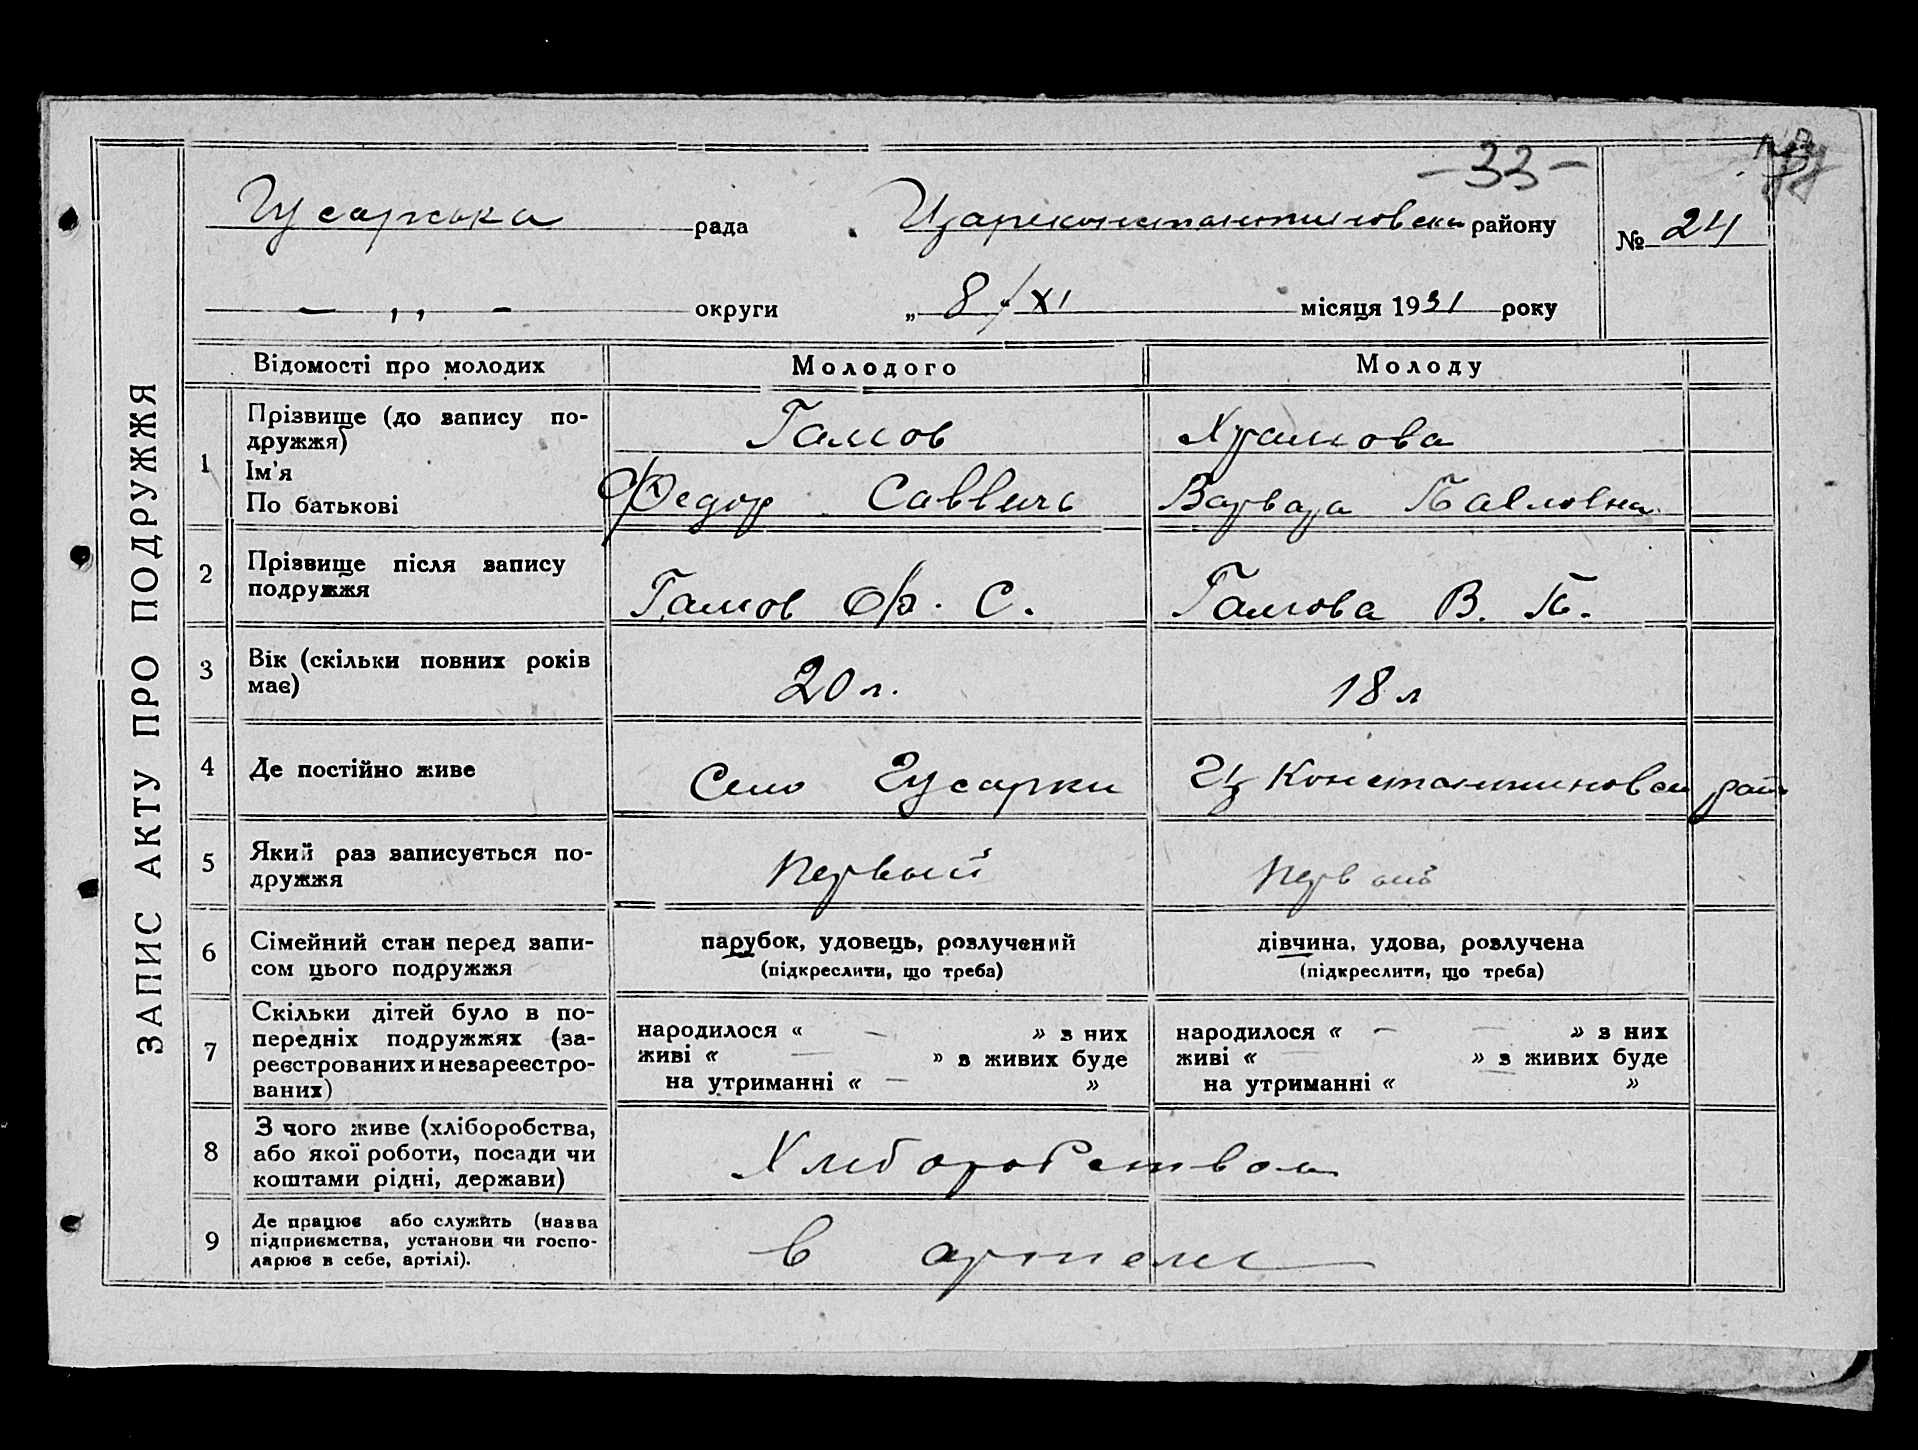 ЗАПИС АКТУ ПРО ПОДРУЖЖЯ
-33-
Гусарська рада Цареконстантиновськ району № 24
— ,, — округи „ 8 / XI місяця 1931 року
Відомості про молодих Молодого Молоду
1 Прізвище (до запису по-
дружжя) Гамов Храмова
Ім'я
По батькові Федор Саввичь Варвара Павловна
2 Прізвище після запису
подружжя Гамов Ф. С. Гамова В. П.
3 Вік (скільки повних років
має) 20 л. 18 л
4 Де постійно живе Село Гусарки Ц Константиновск рай
5 Який раз записується по-
дружжя первый первый
6 Сімейний стан перед запи-
сом цього подружжя
парубок, удовець, розлучений дівчина, удова, розлучена
(підкреслити, що треба) (підкреслити, що треба)
7 Скільки дітей було в по-
передніх подружжях (за-
реєстрованих и незареєстро-
ваних)
народилося « — » з них народилося « — — » з них
живі « — » з живих буде живі « — » з живих буде
на утриманні « — » на утриманні « — »
8 З чого живе (хліборобства,
або якої роботи, посади чи
коштами рідні, держави)
Хлиборобством
9 Де працює або служить (назва
підприємства, установи чи госпо-
дарює в себе, артілі).
в артели